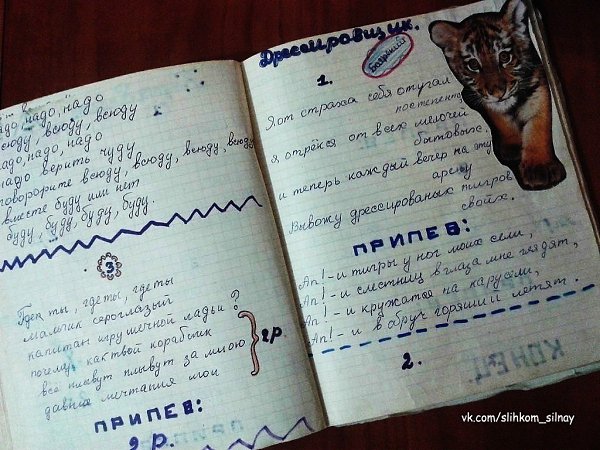 надо, надо, надо
всюду, всюду, всюду
надо, надо, надо
надо верить чуду
говорорите всюду, всюду, всюду, всюду
вместе буду или нет
буду, буду, буду, буду.
3
Где ты, где ты, где ты
мальчик сероглазый
капитан игрушечной ладьи?
почему как твой кораблик
всё плывут плывут за мною
давние мечтания мои
2р.
ПРИПЕВ:
2 р.
Дрессировщик.
Боярский
1.
Я от страха себя отучал
постепенно
я отрёкся от всех мелочей
бытовых.
и теперь каждый вечер на эту
арену
Вывожу дрессированых тигров
своих.
ПРИПЕВ:
Ап! - и тигры у ног моих сели,
Ап! - и с лестниц в глаза мне глядят,
Ап! - и кружатся на карусели,
Ап! - и в обруч горящий летят.
2.
КОНЕЦ
vk.com/slihkom_silnay